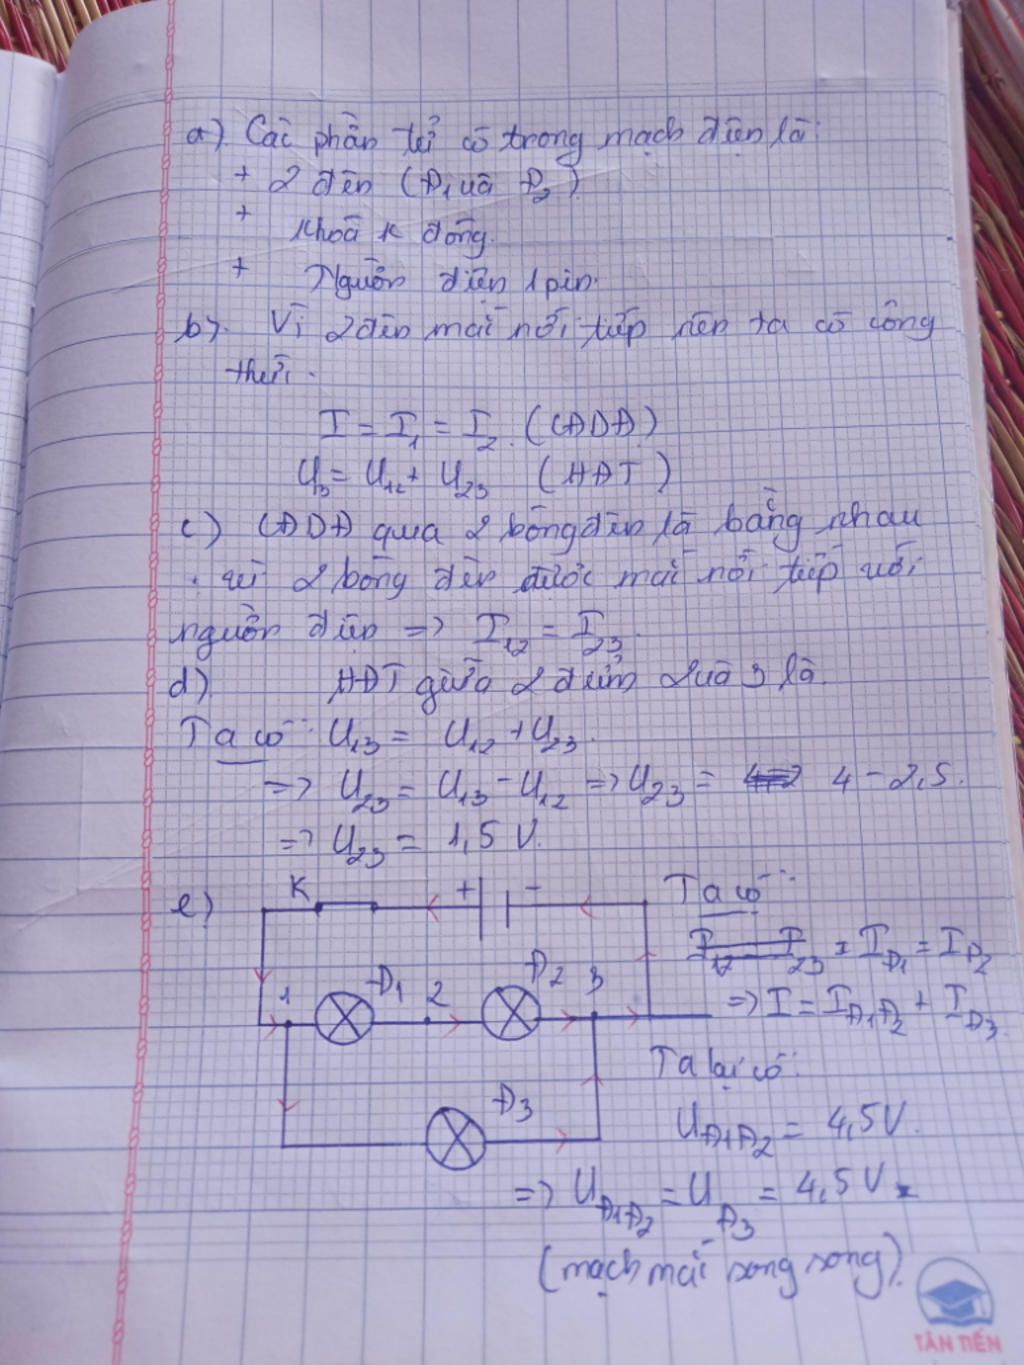 a) Các phần tử có trong mạch điện là:
+ 2 đèn (Đ1 và Đ2)
+ Khoá K đóng.
+ Nguồn điện 1 pin.
b) Vì 2 đèn mắc nối tiếp nên ta có công
thức.
I = I1 = I2. (CĐDĐ)
U13 = U12 + U23 (HĐT)
c) CĐDĐ qua 2 bóng đèn là bằng nhau
vì 2 bóng đèn được mắc nối tiếp với
nguồn điện => I12 = I23.
d) HĐT giữa 2 điểm 2 và 3 là.
Ta có: U13 = U12 + U23.
=> U23 = U13 - U12 => U23 = 4 - 2,5.
=> U23 = 1,5 V.
e) K + - Ta có:
I12 = I23 = IĐ1 = IĐ2
1 Đ1 2 Đ2 3
=> I = IĐ1Đ2 + IĐ3.
Ta lại có:
Đ3
UĐ1Đ2 = 4,5V.
=> UĐ1Đ2 = UĐ3 = 4,5V.
(mạch mắc song song).
TÂN TIẾN